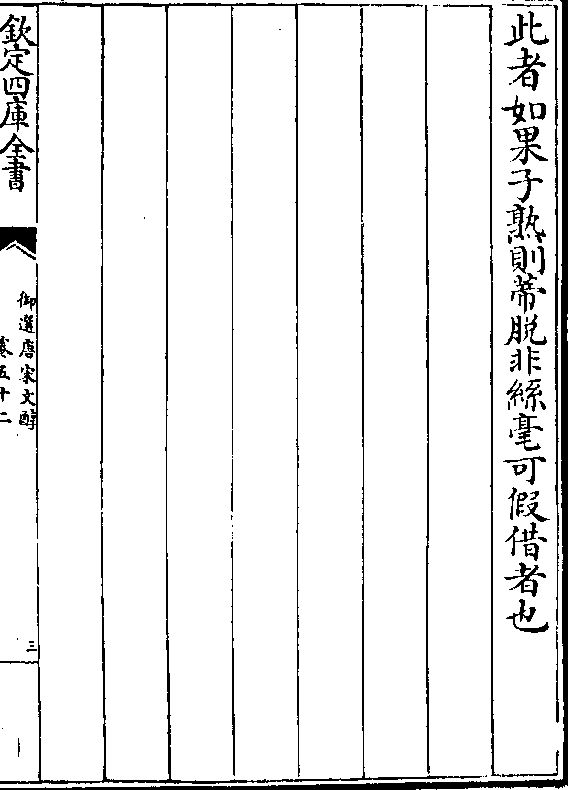 此者如果子熟則蒂脱非絲毫可假借者也
欽定四庫全書
御選唐宋文醇
卷五十二
三